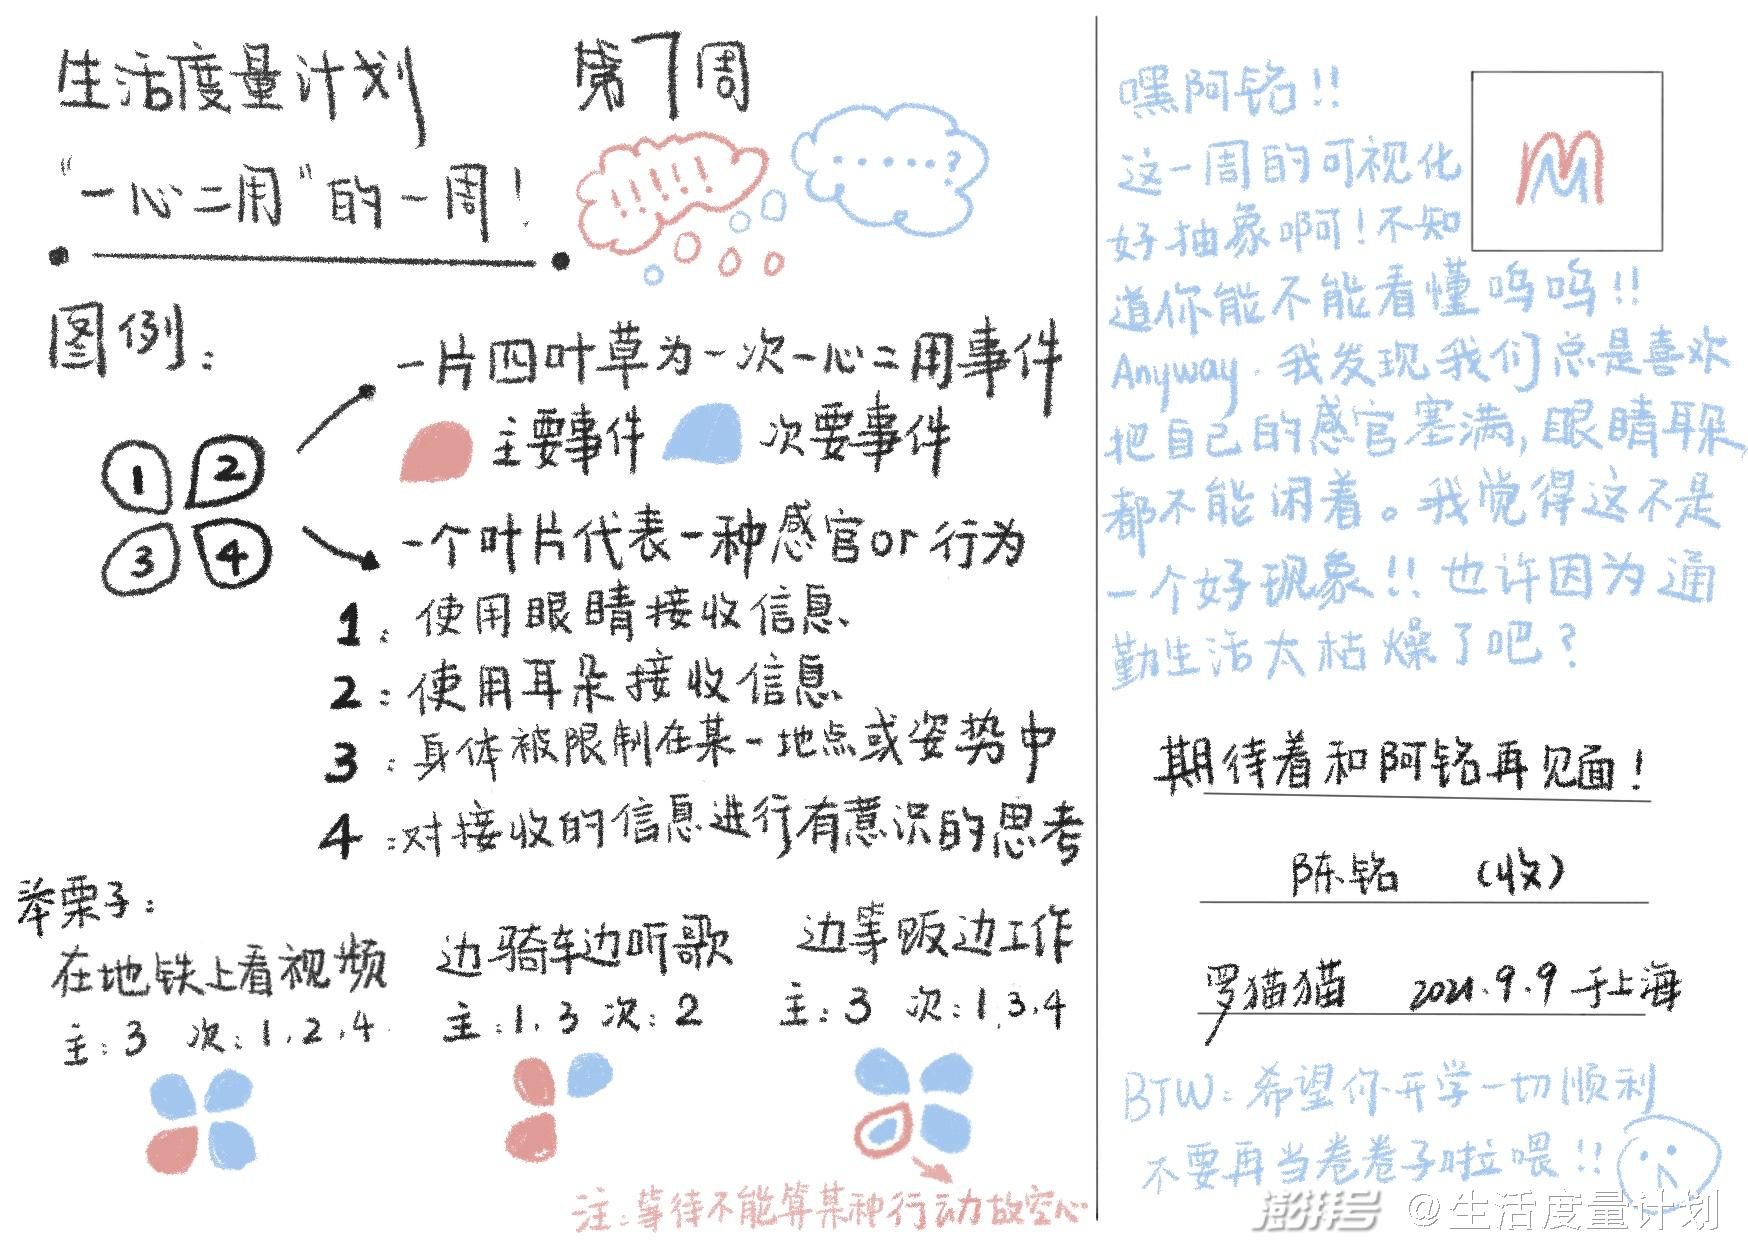 生活度量计划 第7周
“一心二用”的一周！
!!!!!
......?
图例：
一片四叶草为一次一心二用事件
主要事件 次要事件
1 2
3 4
一个叶片代表一种感官or行为
1：使用眼睛接收信息
2：使用耳朵接收信息
3：身体被限制在某一地点或姿势中
4：对接收的信息进行有意识的思考
举栗子：
在地铁上看视频
主：3 次：1.2.4
边骑车边听歌
主：1.3 次：2
边等饭边工作
主：3 次：1.3.4
注：等待不能算某种行动放空心
嘿阿铭!!
这一周的可视化
好抽象啊！不知
道你能不能看懂呜呜!!
Anyway.我发现我们总是喜欢
把自己的感官塞满,眼睛耳朵
都不能闲着。我觉得这不是
一个好现象!!也许因为通
勤生活太枯燥了吧？
M
期待着和阿铭再见面！
陈铭 （收）
罗猫猫 2021.9.9 于上海
BTW：希望你开学一切顺利
不要再当卷卷子啦喂!!
澎湃号 @生活度量计划